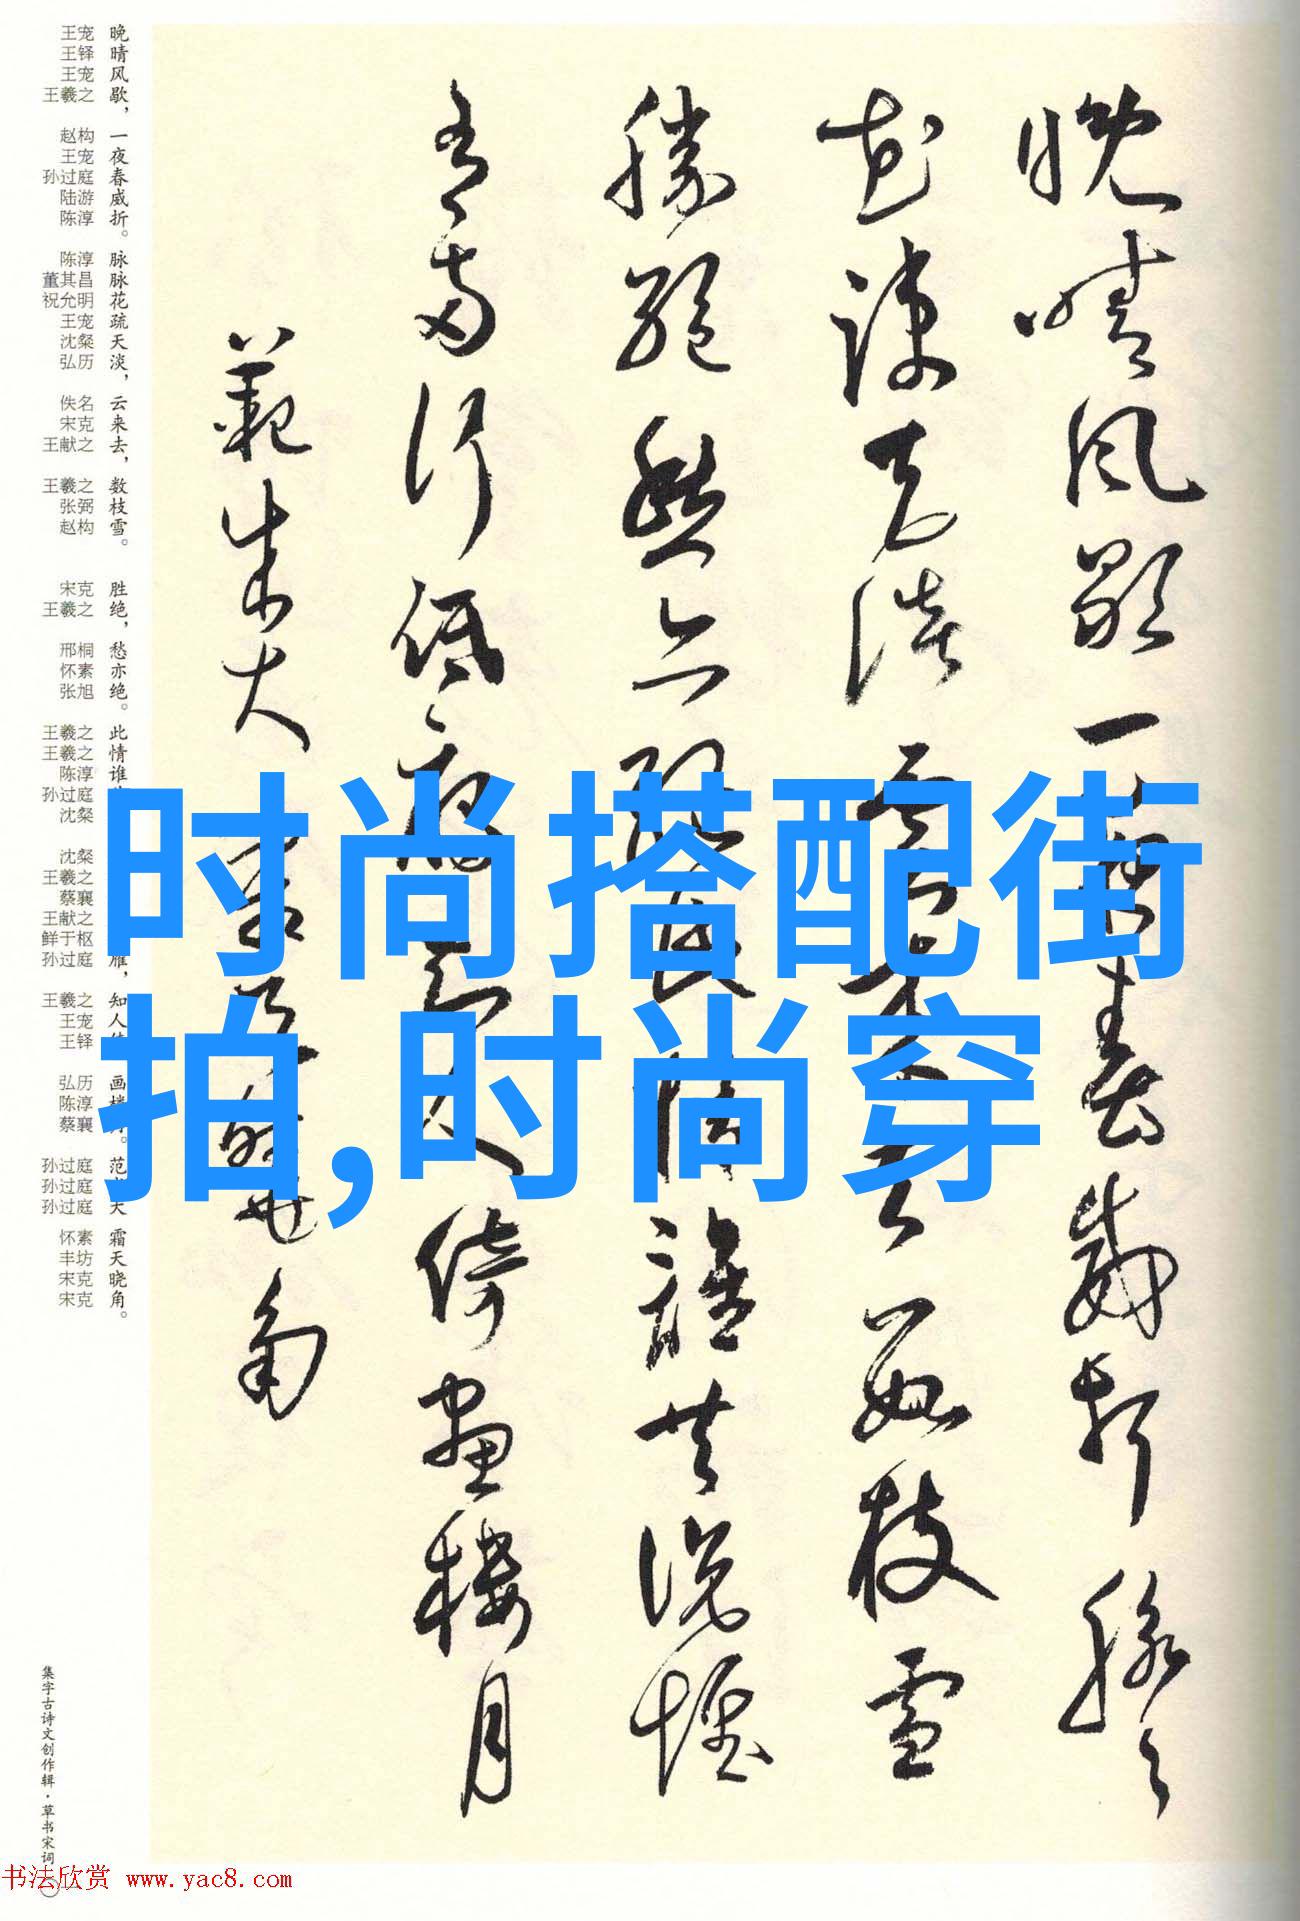 晚晴風歇一夜春威折脉々
花疎天淡雲来去數枝雪
勝絶愁亦絶此情誰共說惟
有兩行低雁知人倚畫樓月
範成大 霜天曉角
晚晴风歇，一夜春威折。脉脉花疏天淡，云来去，数枝雪。胜绝，愁亦绝。此情谁 雁，知人 画 月。范 大 霜天晓角。
王宠 王铎 王宠 王羲之 赵构 王宠 孙过庭 陆游 陈淳 陈淳 董其昌 祝允明 王宠 沈粲 弘历 佚名 宋克 王献之 王羲之 张弼 赵构 宋克 王羲之 邢桐 怀素 张旭 王羲之 王羲之 陈淳 孙过庭 沈粲 沈粲 王羲之 蔡襄 王献之 鲜于枢 孙过庭 王羲之 王宠 王铎 弘历 陈淳 蔡襄 孙过庭 孙过庭 孙过庭 怀素 丰坊 宋克 宋克
集字古诗文创作辑·草书宋词
时尚搭配街
拍,时尚穿
书法欣赏 www.yac8.com